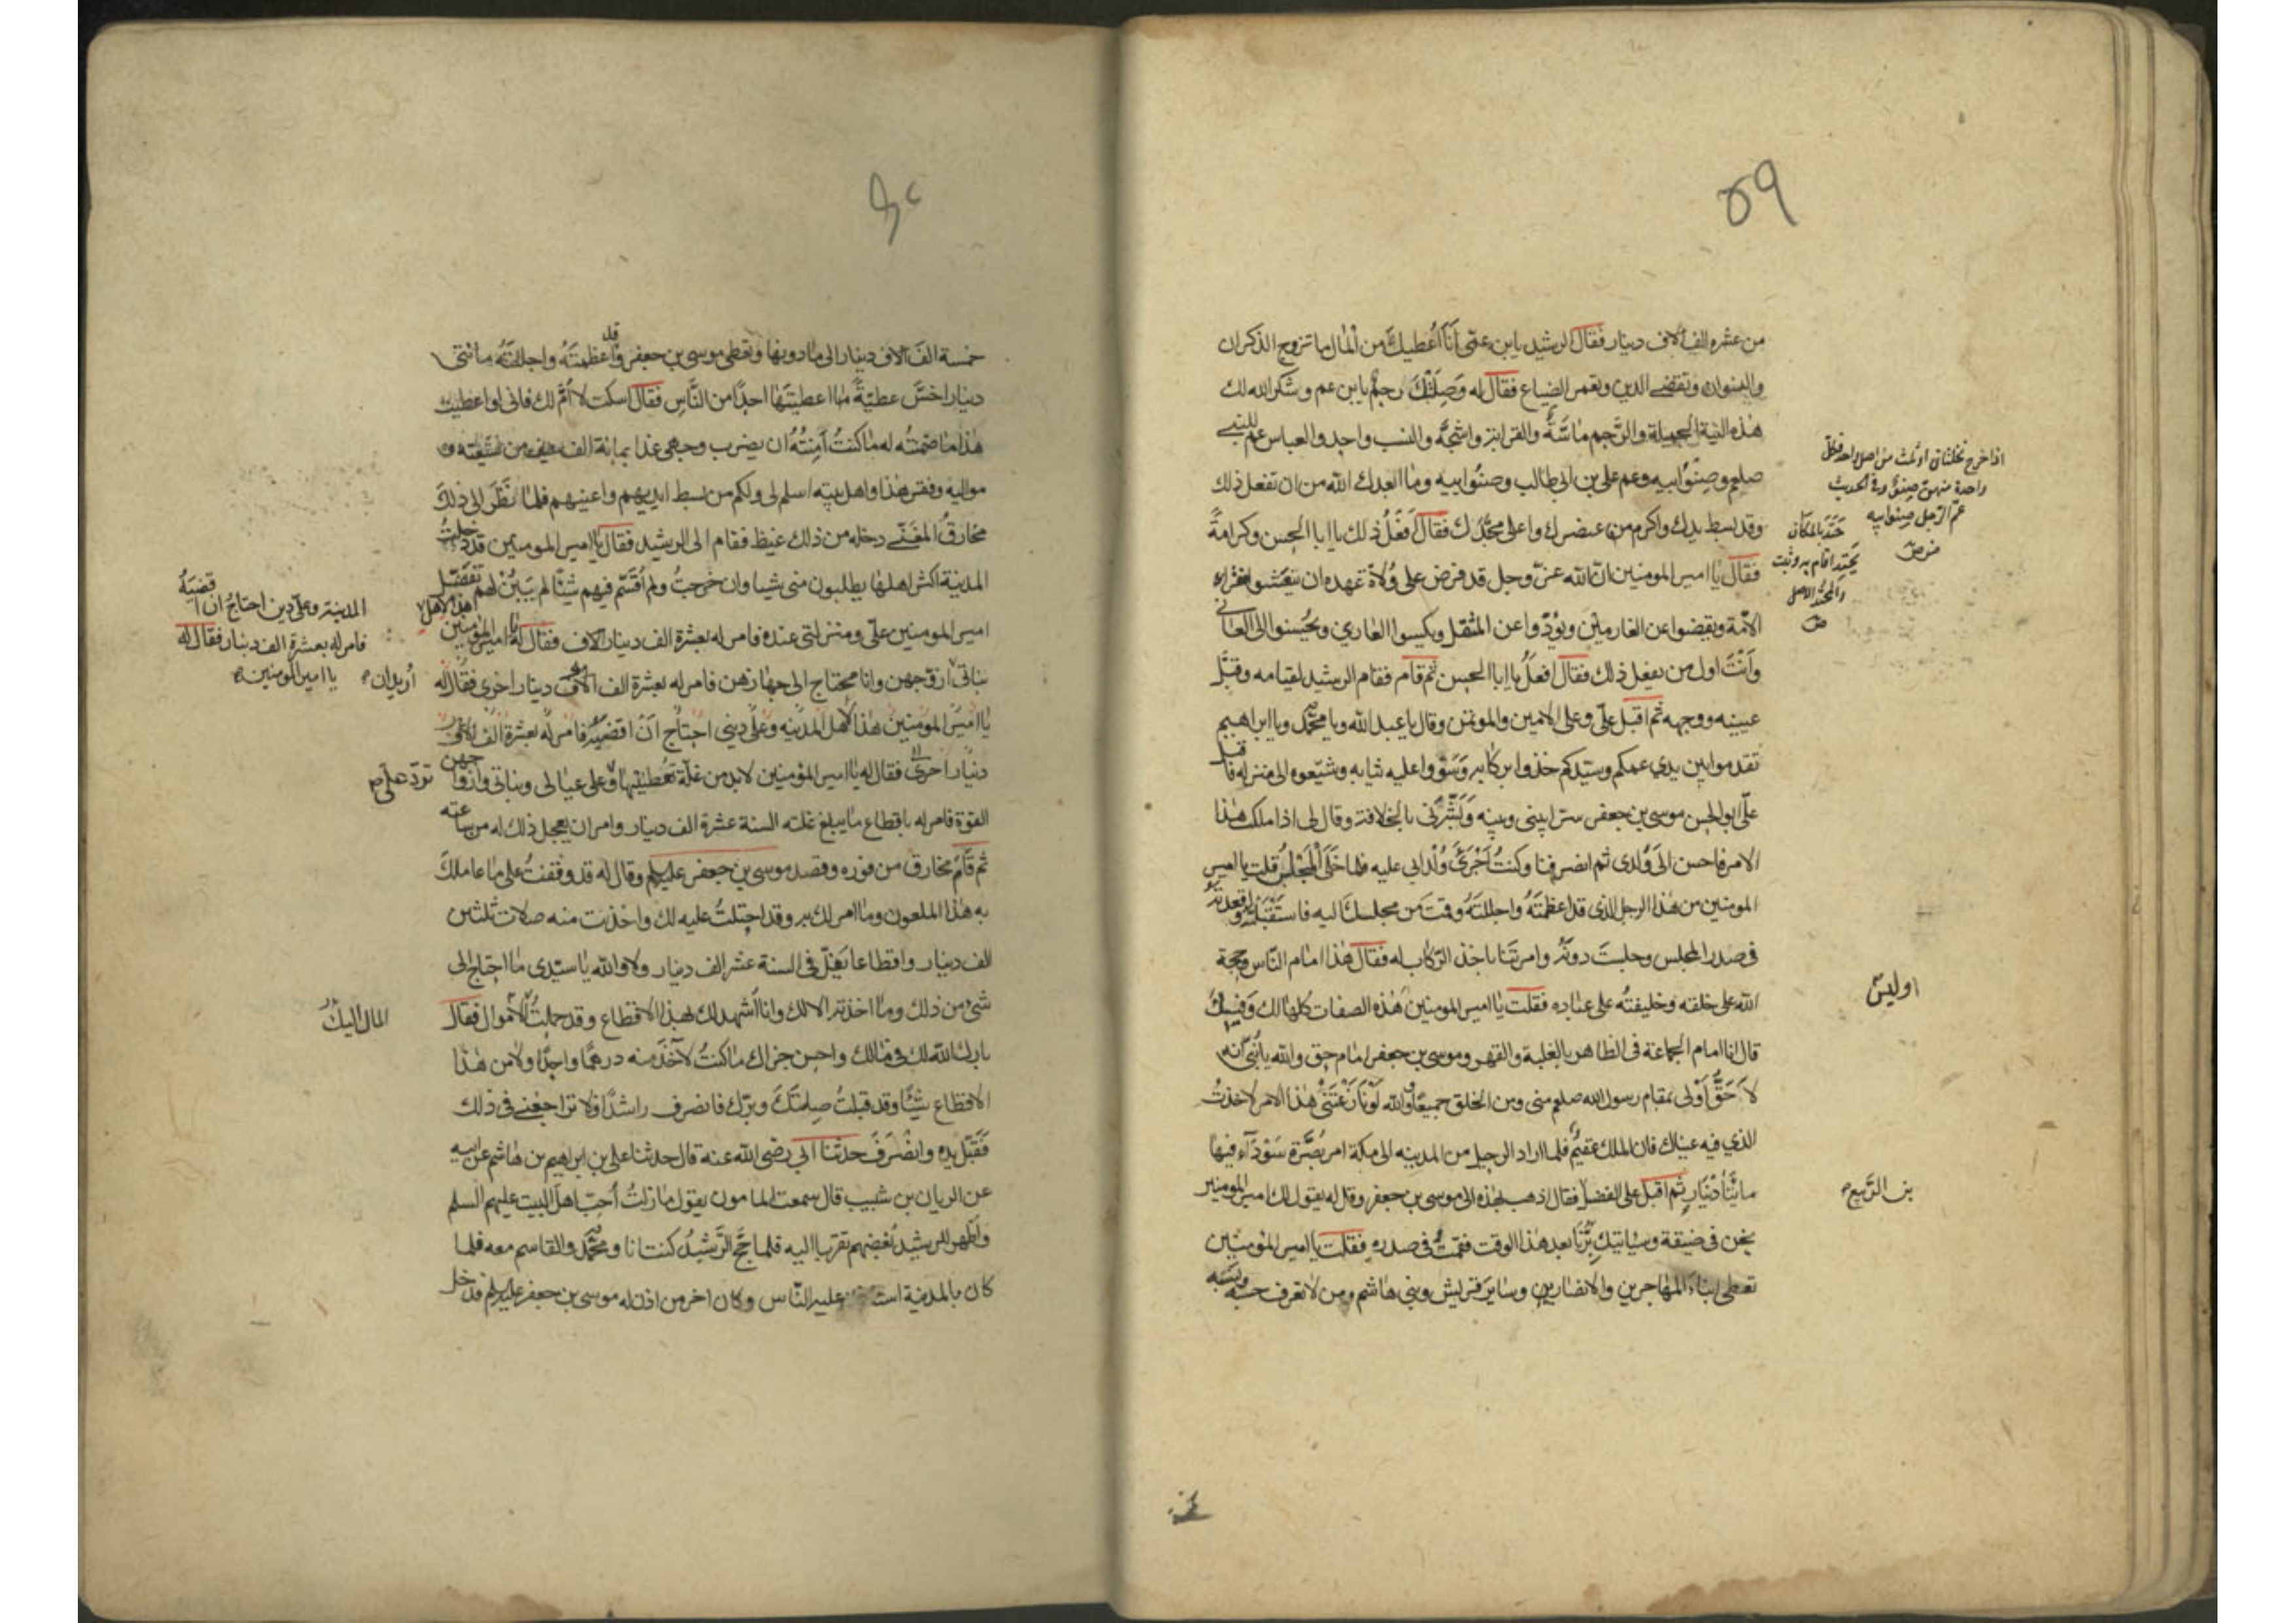 ٥٩
من عشره الف الاف دينار فقال الرشيد يابن عمّى اَنَا اُعطيكَ من المال ما تزوج الذكران
والنسوان وتقضي الدين وتعمر الضياع فقال له وَصِلَتْكَ رحم يابن عم وشكر الله لك
هذه النية الجميلة والرّحم ماسّةٌ والقرابة واشجةٌ والنسب واحد والعباس عم النبي
صلعم وصِنْوُ ابيه وعم علي بن ابي طالب وصنوُ ابيه وما ابعدك الله من ان تفعل ذلك
وقد بسط يدك واكرم من عنصرك واعلى محتدك فقال افعَلُ ذلك يا ابا الحسن وكرامةً
فقال يا امير المومنين ان الله عزّ وجل قد فرض على وُلاة عهده ان ينعشوا فقراء
الامّة ويقضوا عن الغارمين ويؤدّوا عن المثقل ويكسوا العاري ويحسنوا الى العاني
وَاَنْتَ اول من يفعل ذلك فقال افعلُ يا ابا الحسن ثم قام فقام الرشيد لقيامه وقبّل
عينيه ووجهه ثم اقبل علىّ وعلى الامين والموتمن وقال يا عبد الله ويا محمّد ويا ابراهيم
تقدموا بين يدي عمكم وسيّدكم خذوا بركابه وَسَوّوا عليه ثيابه وشيّعوه الى منزله فاقبل
علىّ ابو الحسن موسى بن جعفر سرّا بيني وبينه وَبَشّرَني بالخلافة وقال لي اذا ملكت هذا
الامر فاحسن الى وُلدي ثم انصرفنا وكنتُ اَجْرَىَ وُلْدِ ابي عليه فلما خَلَىَ المجلِسُ قلت يا امير
المومنين من هذا الرجل الذي قد اعظمتَهُ واجللتَهُ وقمتَ من مجلسك اليه فاستَقْبَلْتَه واقعدتَه
في صدر المجلس وجلستَ دونَهُ وامرتَنا باخذ الركاب له فقال هذا امام النّاس وحجة
الله على خلقه وخليفتُه على عباده فقلت يا امير المومنين هذه الصفات كلها لك وفيكَ
قال انا امام الجماعة في الظاهر بالغلبة والقهر وموسى بن جعفر امام حق والله يا بُنَيّ انه
لاَحَقُّ اَوْلى بمقام رسول الله صلعم منى ومن الخلق جميعًا والله لَوْ نَازَعْتَنى هذا الامر لاخذتُ
الذي فيه عيناك فان الملك عقيمٌ فلما اراد الرحيل من المدينه الى مكة امر بصُرّة سَوْدَآء فيها
مائتا دينار ثم اقبل على الفضل فقال اذهب بهذه الى موسى بن جعفر وقل له يقول لك امير المومنين
نحن في ضيقة وسياتيك بِرُّنا بعد هذا الوقت فقمتُ في صدره فقلت يا امير المؤمنين
تعطى ابناءَ المهاجرين والانصار وسايرَ قريش وبني هاشم ومن لا تعرف حسبه ونسبه
اذا خرج نخلتان او ثلث من اصل واحد فكل
واحدة منهن صِنوٌ وفي الحديث
عمّ الرجل صِنو ابيه
حَتَدَ بالمكان
يَحْتِد اقام به وثبت
والمحتِد الاصل
ص
اوليس
بن الرّبيع
خمسة الفَ الاف دينار الى ما دونها وتعطى موسى بن جعفر وقد اعظمتَهُ واجللتَهُ مائتي
دينار اخسّ عطيّةً ما اعطيتَها احدًا من النّاس فقال اسكت لا اُمّ لك فانى لو اعطيت
هذا ما ضمنتُه له ما كنتُ اَمِنْتُهُ ان يضرب وجهي غدا بمائة الف سيف من شيعته و
مواليه وفقر هذا واهل بيته اسلم لى ولكم من بسط ايديهم واعينهم فلما نظَرَ الى ذلكَ
مخارقُ المغنّي دخله من ذلك غيظ فقام الى الرشيد فقال يا امير المومنين قد دخلتُ
المدينة اكثر اهلها يطلبون منى شيا وان خرجتُ ولم اُقسّم فيهم شيئًا لم يتبيّن لهم تفضّل
امير المومنين علىّ ومنزلتى عنده فامر له بعشرة الف دينار الاف فقال له يا امير المؤمنين هذا لاهل
بناتى ازوّجهن وانا محتاج الى جهازهن فامر له بعشرة الف الاف دينار اخرى فقال له
يا امير المومنين هذا لاهل المدينه وعلىّ ديني احتاج اَن اقضيه فامر له بعشرة الف الاف
دينار اخرى فقال له يا امير المؤمنين لابد من غلّة تعطينيها وعلى عيالى وبناتى وازواجهن
القوة فامر له باقطاع ما يبلغ غلته السنة عشرة الف دينار وامر ان يعجل ذلك له من ساعته
ثم قامَ مخارق من فوره وقصد موسى بن جعفر عليهما وقال له قد وقفتُ على ما عاملكَ
به هذا الملعون وما امر لك به وقد احتلتُ عليه لك واخذت منه صلات ثلثين
الف دينار واقطاعا يغلّ فى السنة عشر الف دينار ولا والله يا سيّدى ما احتاج الى
شئ من ذلك وما اخذته الا لك وانا اُشهد لك بهذا الاقطاع وقد حملتُ الاموال فقال
بارك الله لك فى مالك واحسن جزاك ما كنتُ لآخذ منه درهمًا واحدًا ولا من هذا
الاقطاع شيئًا وقد قبلتُ صِلتَكَ وبرّك فانصرف راشدًا ولا تراجعني في ذلك
فَقَبّل يده وانصَرَفَ حدثنا ابي رضى الله عنه قال حدثنا على بن ابراهيم بن هاشم عن ابيه
عن الريان بن شبيب قال سمعت المامون يقول ما زلتُ اُحبّ اهلَ البيت عليهم السلم
واُظهر للرشيد بُغضهم تقربا اليه فلما حجّ الرّشيدُ كنت انا ومحمّد والقاسم معه فلما
كان بالمدينة استاذن عليه النّاس وكان اخر من اذن له موسى بن جعفر عليه السلم فدخل
المدينة وعلىّ دين احتاجُ ان اقضيَهُ
فامر له بعشرة الف دينار فقال له
يا امير المومنين
اُريد ان
تردّ على ص
المال اليك